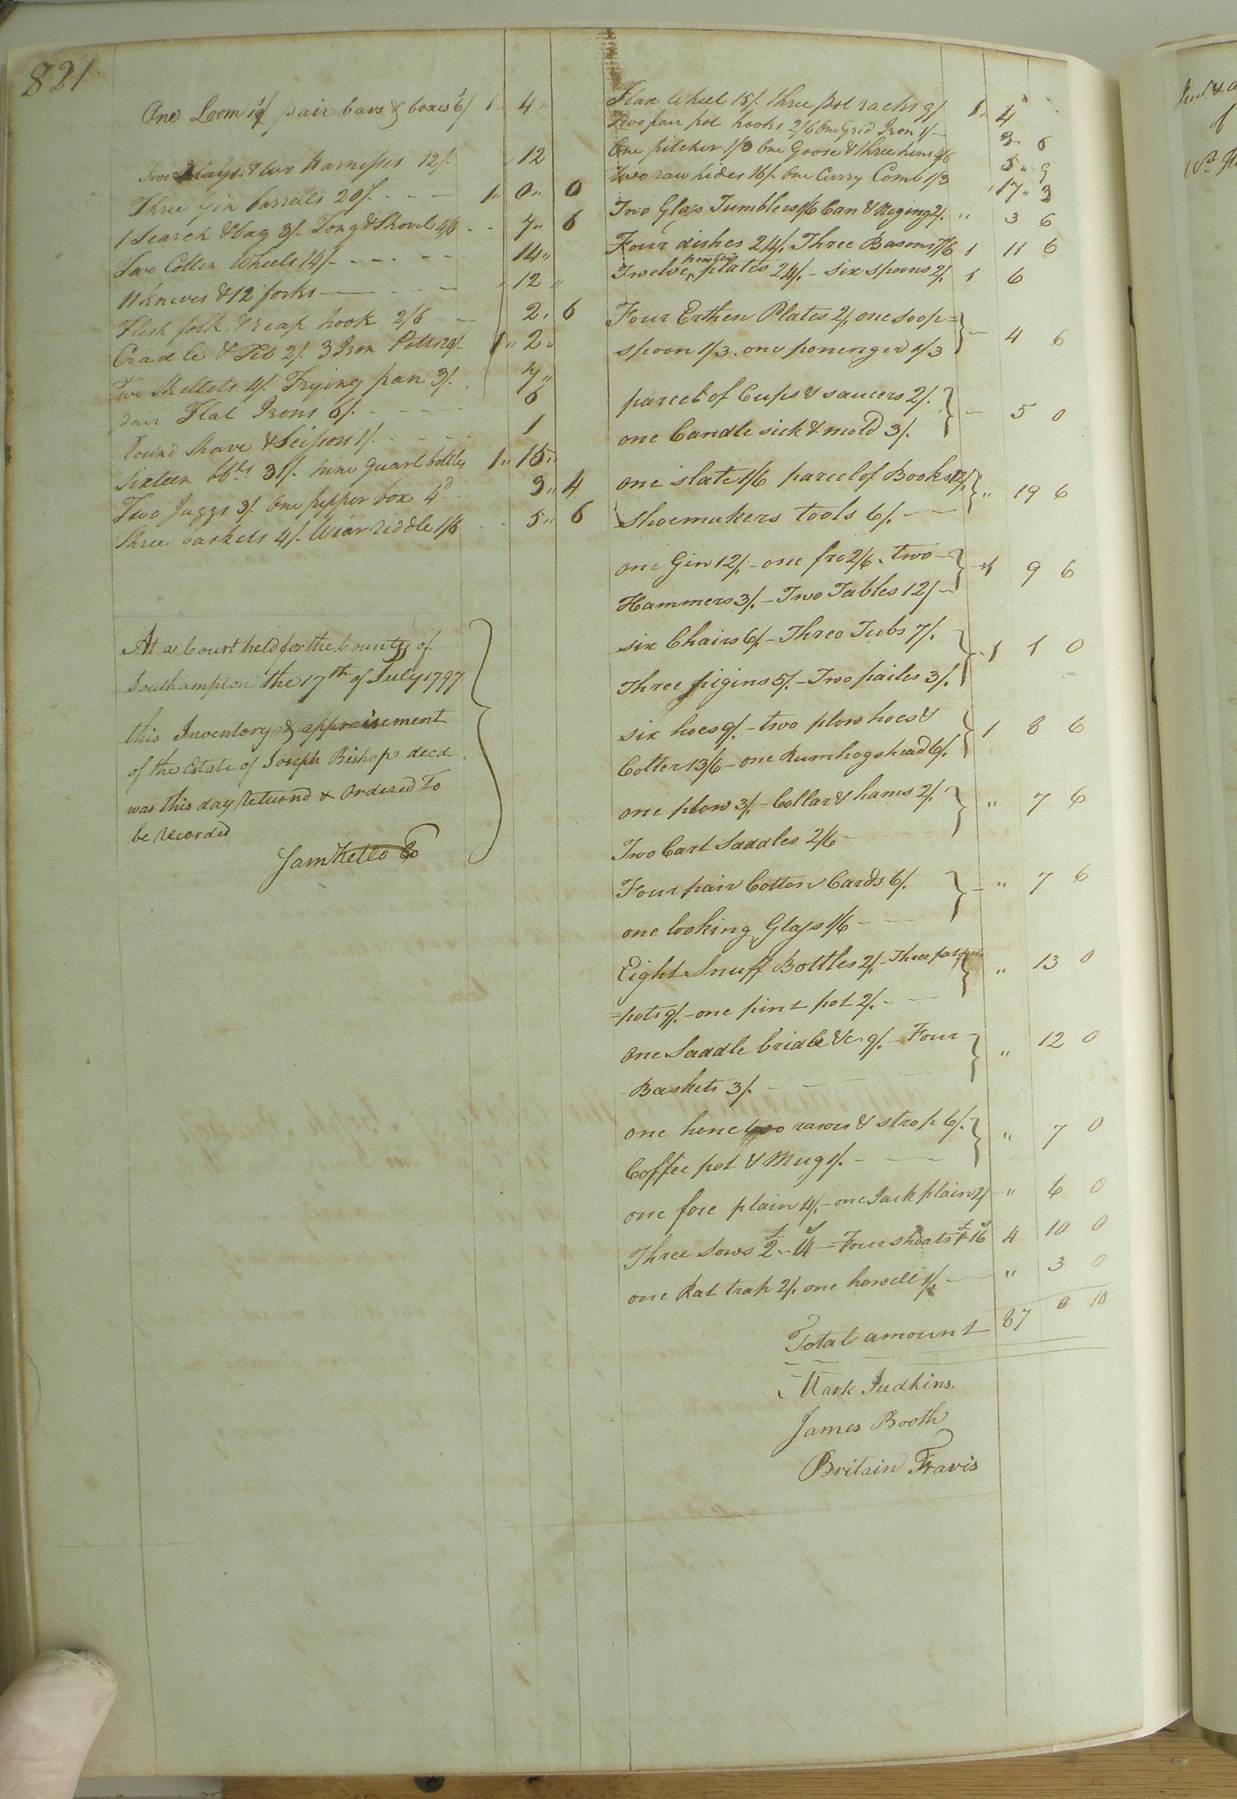 821
One Loom 18/ pair bars & boxes 6/ 1 " 4 "
Two Slays & two harnesses 12/. " 12
Three Gin barrells 20/. - - - 1 " 0 " 0
1 Search & bag 3/. Tong & Shovel 4/6 - - 7 " 6
Two Cotten Wheels 14/- - - - - 14 "
11 Knives & 12 forks - - - " 12 "
Flesh folk & reap hook 2/6 - - 2 " 6
Cradle & Peb 2/. 3 Iron Potts 20/- 1 " 2 "
Two Skellets 4/. Frying pan 3/. . 7 "
pair Flat Irons 6/. - - - - 6
Round Shave & Scissors 1/. - - - - 1
Sixteen bbls 31/. nine quart bottles 1 " 15 "
Two Juggs 3/. One pepper box 4d 3 " 4
Three baskets 4/. Wiar riddle 1/6 - - 5 " 6
At a Court held for the County of
Southampton the 17th of July 1797
this Inventory & appraisement
of the Estate of Joseph Bishop decd
was this day Returnd & Ordered To
be Recorded
Sam Kello
Flax Wheel 15/. three pot racks 9/ 1 " 4 "
Two pair pot hooks 2/6 One Grid Iron 1/- 3 " 6
One pitcher 1/3 One Goose & three hens 4/6 5 " 9
Two raw hides 16/. One Curry Comb 1/3 " 17 " 3
Two Glass Tumblers 1/6 Can & 2/. " 3 6
Four dishes 24/. Three Basons 7/6 1 11 6
Twelve pewter plates 24/. - six spoons 2/. 1 6
Four Erthen Plates 2/. one soop =
spoon 1/3. one porrenger 1/3 } - 4 6
parcel of Cups & saucers 2/.
one Candle sick & mold 3/. } - 5 0
one slate 1/6 parcel of Books 12/.
Shoemakers tools 6/. - } " 19 6
one Gin 12/. - one fro 2/6. two -
Hammers 3/. - Two Tables 12/- } 1 9 6
six Chairs 6/ - Three Tubs 7/.
Three pigins 5/. - Two pailes 3/. } 1 1 0
six hoes 9/. - two plow hoes &
Colter 13/6 - one Rumhogshead 6/. } 1 8 6
one plow 3/. - Collar & hams 2/.
Two Cart Saddles 2/6 - } " 7 6
Four pair Cotton Cards 6/.
one looking Glass 1/6 - } - " 7 6
Eight Snuff Bottles 2/. - Three
= pots 9/. - one pint pot 2/. - } " 13 0
One Saddle bridle &c 9/. - Four
Baskets 3/. - } " 12 0
one hone two rasors & strop 6/.
Coffee pot & Mug 1/. - } " 7 0
one fore plain 4/. - one Jack plain 2/ - " 6 0
Three Sows £2 " 14s - Four shoats £1 16s 4 10 0
one Rat trap 2/. one howell 1/. - " 3 0
Total amount 87 0 10
Mark Judkins.
James Booth
Britain Travis